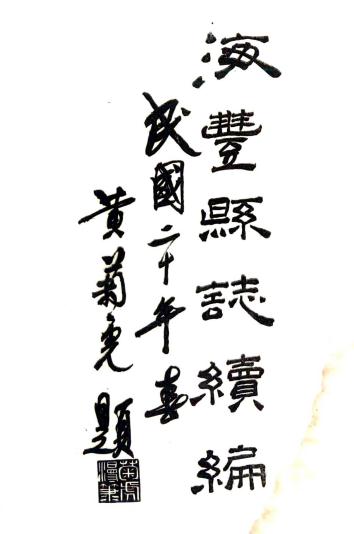 海豐縣誌續編
民國二十年春
黄菊虎題